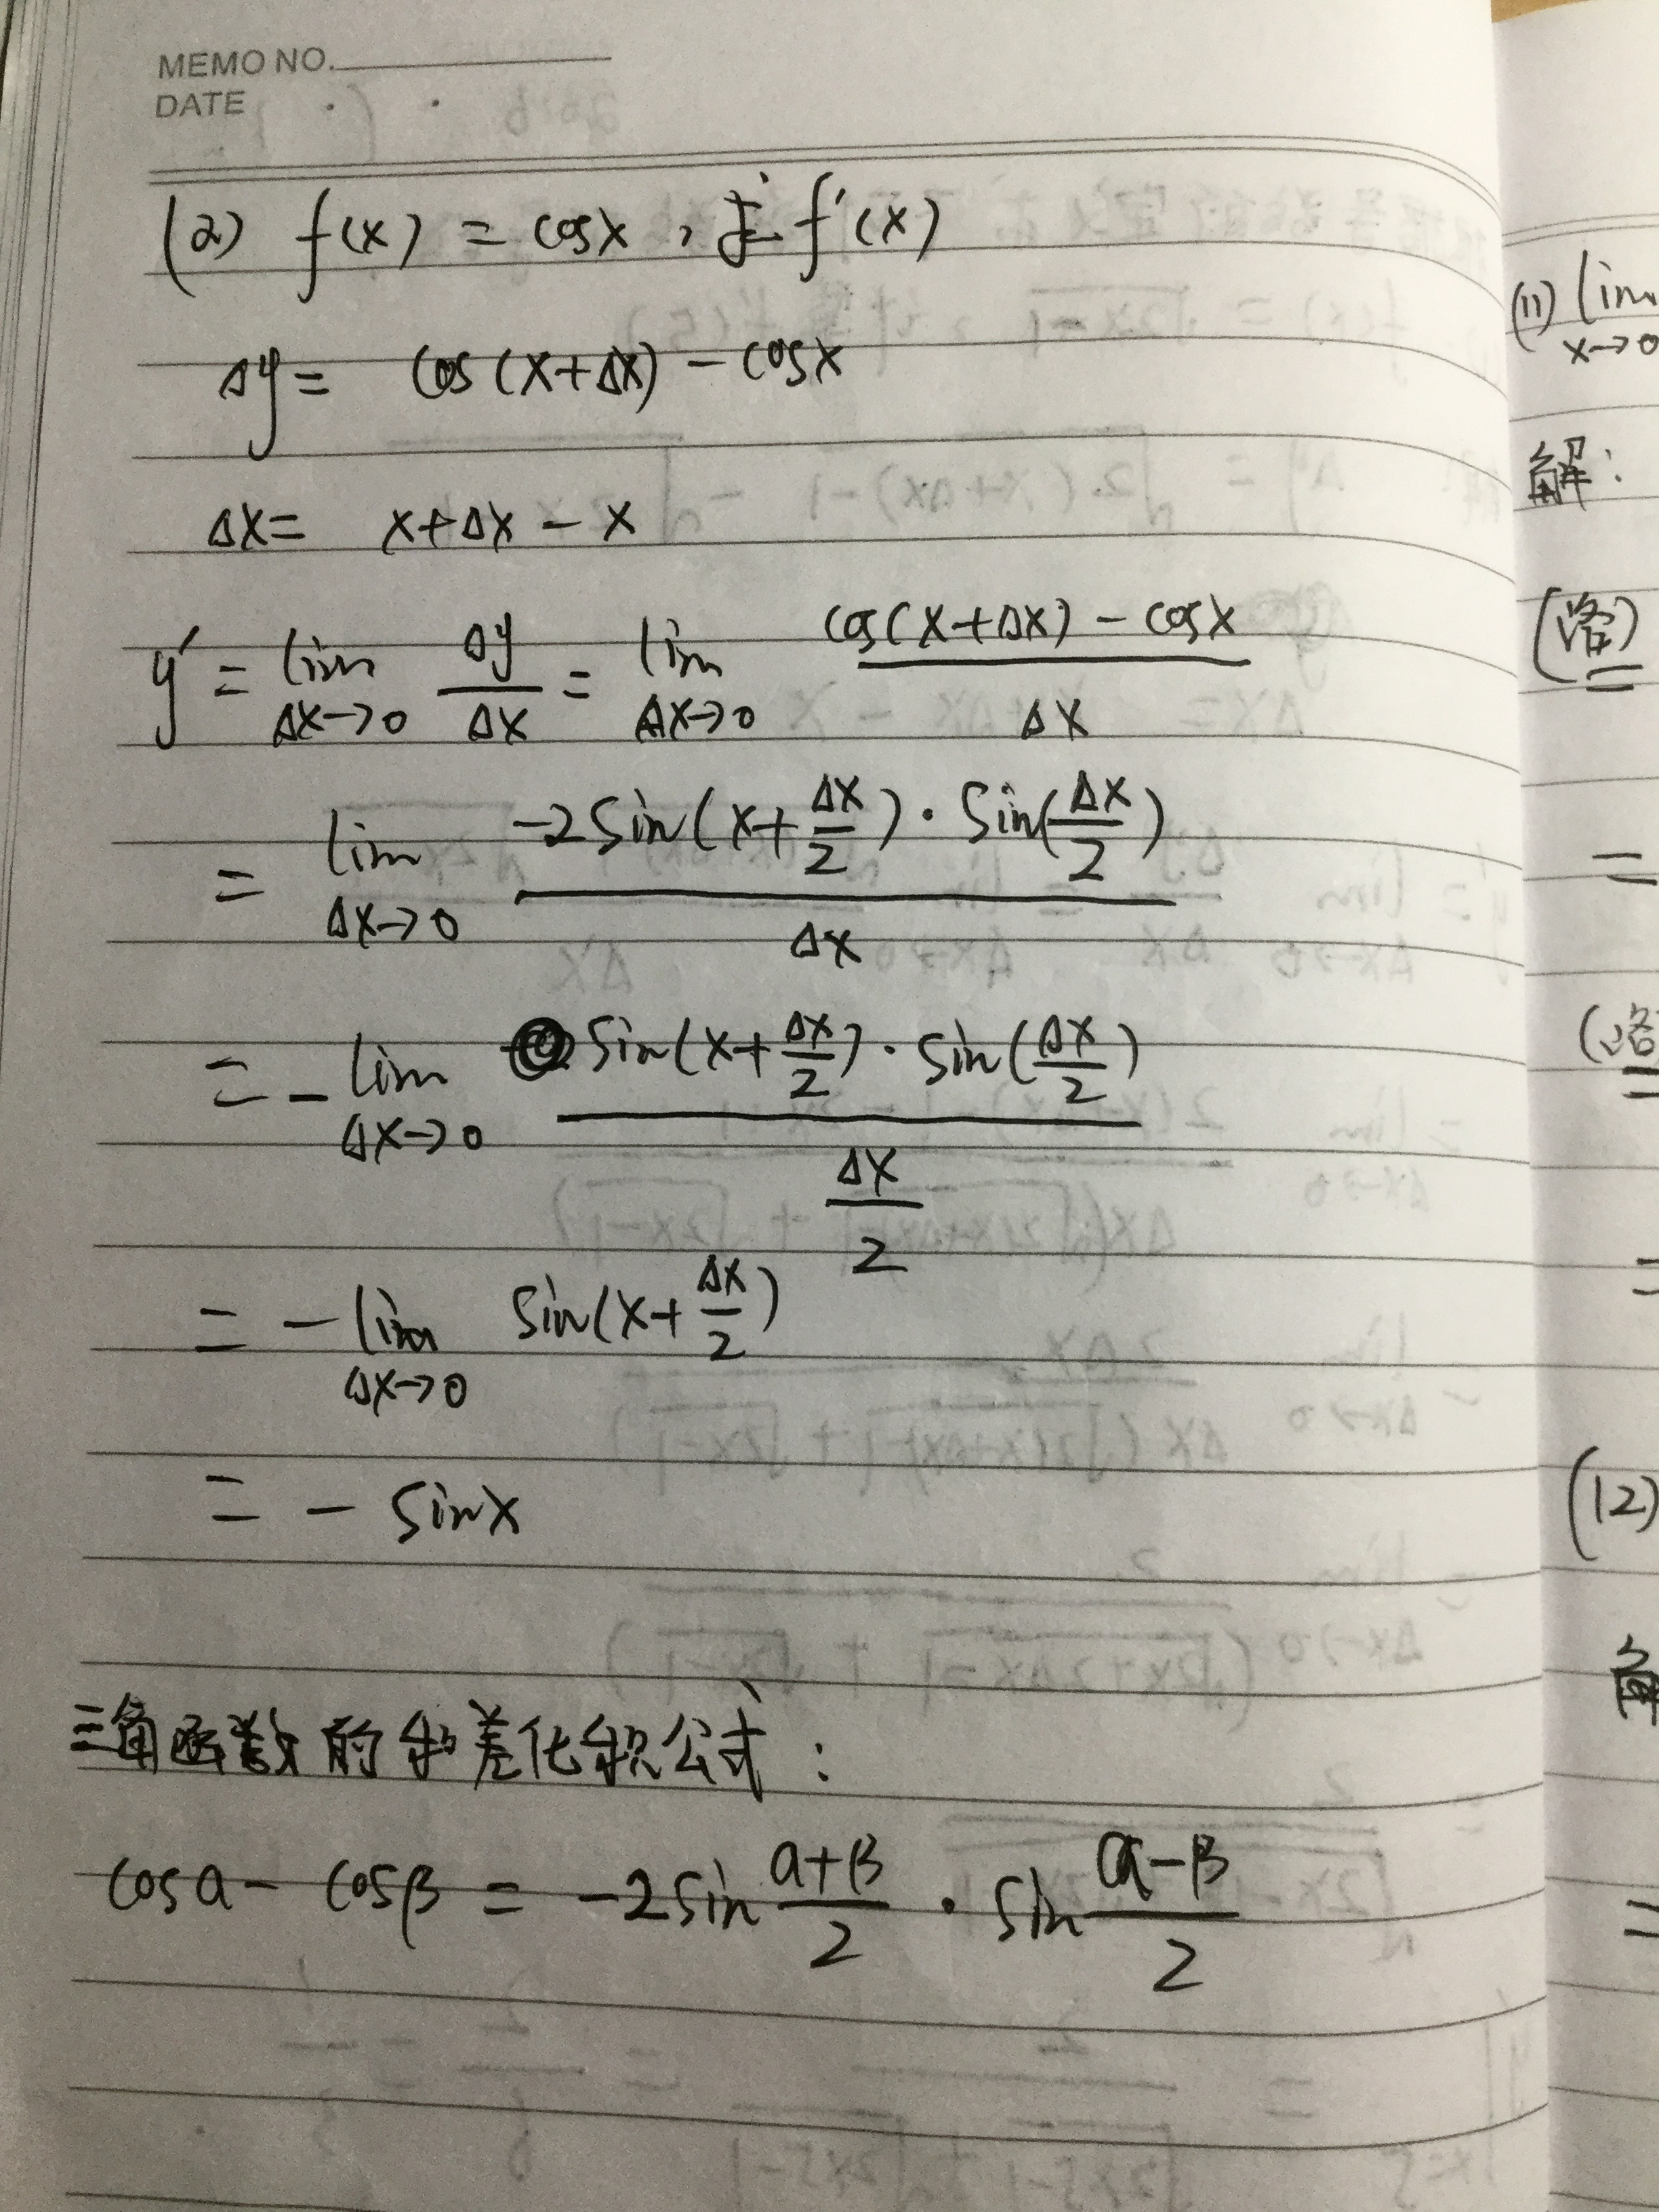 MEMO NO.
DATE
(2) f(x) = cosx , 求 f'(x)
Δy = cos(x+Δx) - cosx
Δx = x+Δx - x
y' = lim Δx→0 Δy/Δx = lim Δx→0 (cos(x+Δx) - cosx)/Δx
= lim Δx→0 (-2sin(x+Δx/2)·sin(Δx/2))/Δx
= -lim Δx→0 (sin(x+Δx/2)·sin(Δx/2))/(Δx/2)
= -lim Δx→0 sin(x+Δx/2)
= - sinx
三角函数的和差化积公式:
cosα - cosβ = -2sin (α+β)/2 · sin (α-β)/2
(11) lim x→0
解:
(略)
=
=
(略
=
=
(12)
=